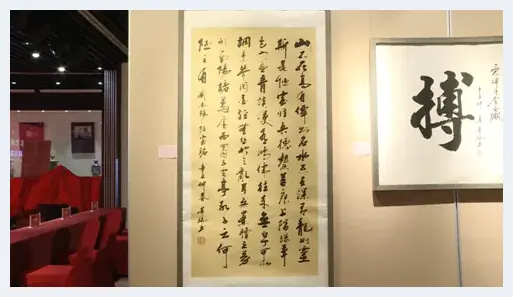 山不在高有仙則名水不在深有龍則靈
斯是陋室惟吾德馨苔痕上階綠草
色入簾青談笑有鴻儒往來無白丁可以
調素琴閱金經無絲竹之亂耳無案牘之勞
形南陽諸葛廬西蜀子雲亭孔子云何
陋之有 劉禹錫 陋室銘 辛卯春
搏